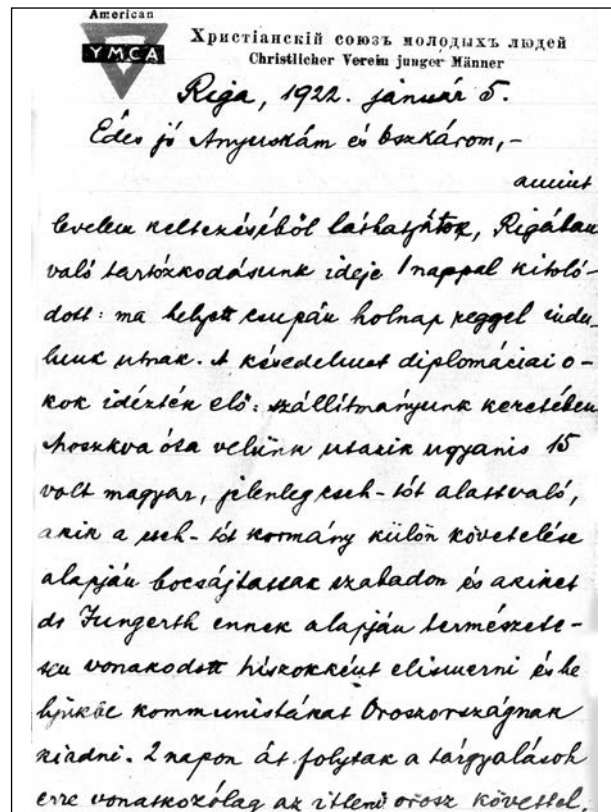 American
YMCA
Христіанскій союзъ молодыхъ людей
Christlicher Verein junger Männer
Riga, 1922. január 5.
Édes jó Anyuskám és Oszkárom,-
amint
levelem keltezéséből láthatjátok, Rigában
való tartózkodásunk ideje 1 nappal kitoló-
dott: ma helyett csupán holnap reggel indu-
lunk utnak. A késedelmet diplomáciai o-
kok idézték elő: szállítmányunk keretében
Moszkva óta velünk utazik ugyanis 15
volt magyar, jelenleg cseh-tót alattvaló,
akik a cseh-tót kormány külön követelése
alapján bocsájtattak szabadon és akiket
dr Jungerth ennek alapján természete-
sen vonakodott túszokként elismerni és he
lyükbe kommunistákat Oroszországnak
kiadni. 2 napon át folytak a tárgyalások
erre vonatkozólag az itteni orosz követtel,